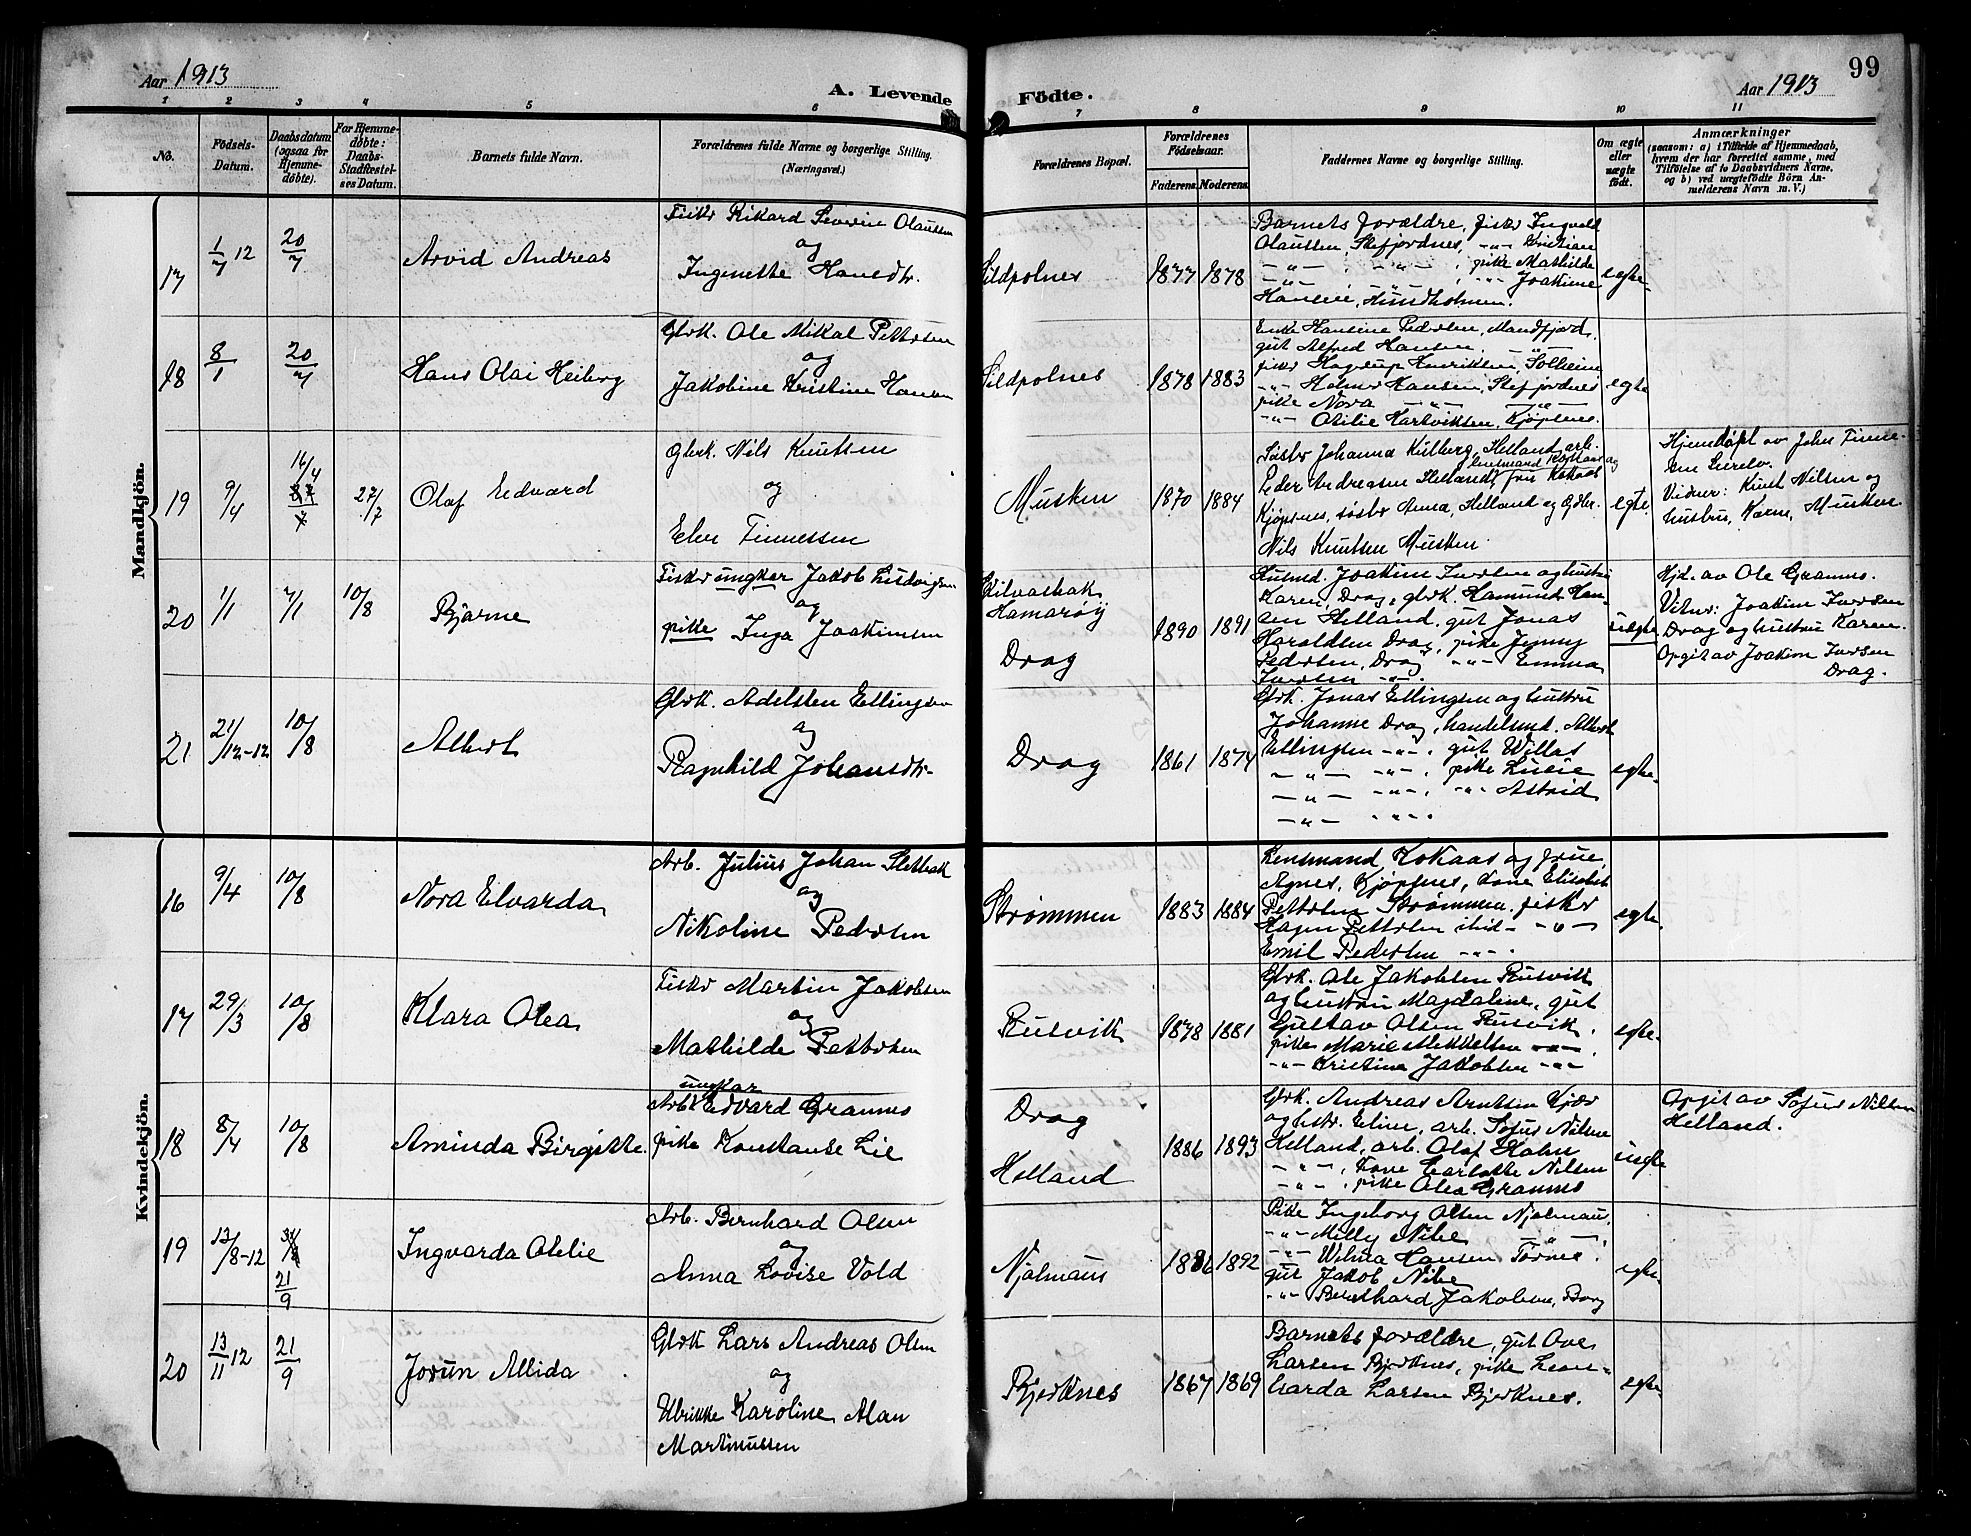 Aar 1913
A. Levende
Födte.
Aar 1913
99
1 2 3 4 5 6 7 8 9 10 11
No.
Födsels-
Datum.
Daabsdatum
(ogsaa for
Hjemme-
döbte).
For Hjemme-
döbte:
Daabs-
Stadfæstel-
ses Datum.
Barnets fulde Navn.
Forældrenes fulde Navne og borgerlige Stilling.
(Næringsvei.)
Forældrenes Bopæl.
Forældrenes
Födselsaar.
Faderens. Moderens.
Faddernes Navne og borgerlige Stilling.
Om ægte
eller
uægte
födt.
Anmærkninger
(saasom: a) i Tilfælde af Hjemmedaab,
hvem der har forrettet samme, med
Tilföielse af to Daabsvidners Navne,
og b) ved uægtefödte Börn An-
melderens Navn m. V.)
Mandkjön.
17
1/7 12
20/7
Arvid Andreas
Fisker Rikard Severin Olaussen
og
Ingenette Hansdtr.
Sildpolnes
1877 1878
Barnets forældre, fisker Ingvald
Olaussen, Stefjordnes, -"- Kristian
-"- , -"- , pike Mathilde
-"- , -"- Joakime
Hansen, Hundholmen.
egte
18
8/1
20/7
Hans Olai Heiberg
Gbrk. Ole Mikal Pettersen
og
Jakobine Kristine Hansen
Sildpolnes
1878 1883
Enke Hansine Pedersen, Mandfjord,
gut Alfred Hansen, -"-
fisker Hagerup Henriksen, Solheim
-"- Helmer Hansen, Stefjordnes
pike Nora -"- -"-
-"- Otilie Hartviksen, Kjøpsnes.
egte
19
9/4
16/4
27/7
27/7
Olaf Edvard
gbrk. Nils Knutsen
og
Elen Finnessen
Musken
1870 1884
Søster Johanna Kulberg, Helland, arb.
Peder Andreasen Helland, lensmand Kokaas og
frue Kokaas
Kjøpsnes, søster Anna, Helland og
Nils Knutsen Musken.
egte
Hjemdøpt av John Finne-
sen
Vidner: Knut Nilsen og
hustru, Karen, Musken
20
1/1
7/1
10/8
Bjarne
Fisker ungkar Jakob Ludvigsen
og
pike Inga Joakimsen
Hamarøy
Drag
1890 1891
Husmd. Joakim Iversen og hustru
Karen, Drag, gbrk. Hamund Han-
sen Helland, gut Jonas
Haraldsen Drag, pike Jenny
Pedersen, Drag -"- Emma
Iversen -"-.
uegte
Hjd. av Ole Grannes.
Vitner: Joakim Iversen
Drag og hustru Karen.
Opgit av Joakim Iversen
Drag.
21
21/12-12
10/8
Albert
Gbrk. Adelsten Ellingsen
og
Ragnhild Johansdtr.
Drag
1861 1874
Gbrk. Jonas Ellingsen og hustru
Johanne Drag, handelsmd. Albert
Ellingsen -"-, gut Willas
-"- -"-, pike Lucie
-"- -"-, -"- Astrid
-"- -"-.
egte
Kvindekjön.
16
9/4
10/8
Nora Elvarda
Arb. Julius Johan Sletbak
og
Nikoline Pedersen
Strømmen
1883 1884
Lensmand Kokaas og frue,
Agnes, Kjøpsnes, kone Elisabet
Pettersen Strømmen, fisker
Hagen Pettersen ibid -"-
Emil Pedersen -"-.
egte
17
29/3
10/8
Klara Olea
Fisker Martin Jakobsen
og
Mathilde Pettersen
Rusvik
1878 1881
Gbrk. Ole Jakobsen Rusvik
og hustru Magdaline, gut
Gustav Olsen Rusvik,
pike Marie Mikkelsen -"-
-"- Kristine Jakobsen -"-
egte
18
8/4
10/8
Aminda Birgitte
ungkar
Arb. Edvard Grannes
pike Konstanse Lie
Drag
Helland
1886 1893
Gbrk. Andreas Arntsen Kjær
og hstr. Eline, arb. Sofus Nilsen
Helland, arb. Olaf Holm
-"-, kone Charlotte Nilsen
-"-, pike Olea Grannes
uegte
Opgit av Sofus Nilsen
Helland.
19
13/8-12
21/9
Ingvarda Otelie
Arb. Bernhard Olsen
og
Anna Lovise Vold
Njalmaus
1886 1892
Pike Ingeborg Olsen Njalmaus,
-"- Milly Nibe -"-,
-"- Wilma Hansen Tørnes.
gut Jakob Nibe
-"- Bernhard Jakobsen, Borg
egte
20
13/11 12
21/9
Jorun Alida
Gbrk Lars Andreas Olsen
og
Ulrikke Karoline Alan
Martinussen
Bjerknes
1867 1869
Barnets forældre, gut Ove
Larsen Bjerknes, pike Leon-
harda Larsen Bjerknes.
egte